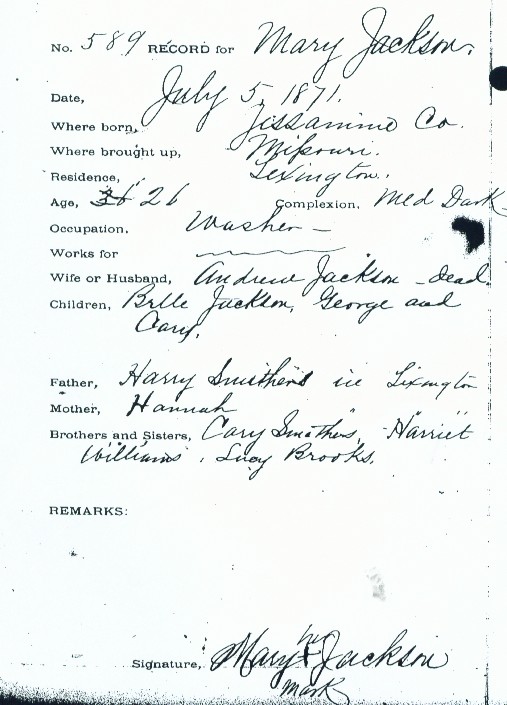 No. 589 RECORD for Mary Jackson.
Date, July 5, 1871.
Where born, Jissamine Co.
Where brought up, Missouri.
Residence, Lexington.
Age, 36 26 Complexion, Med Dark
Occupation, Washer —
Works for
Wife or Husband, Andrew Jackson - dead.
Children, Belle Jackson, George and
Cary.
Father, Harry Smithers in Lexington
Mother, Hannah " "
Brothers and Sisters, Cary Smothers, Harriet
Williams, Lucy Brooks.
REMARKS:
her
Signature, Mary X Jackson
mark